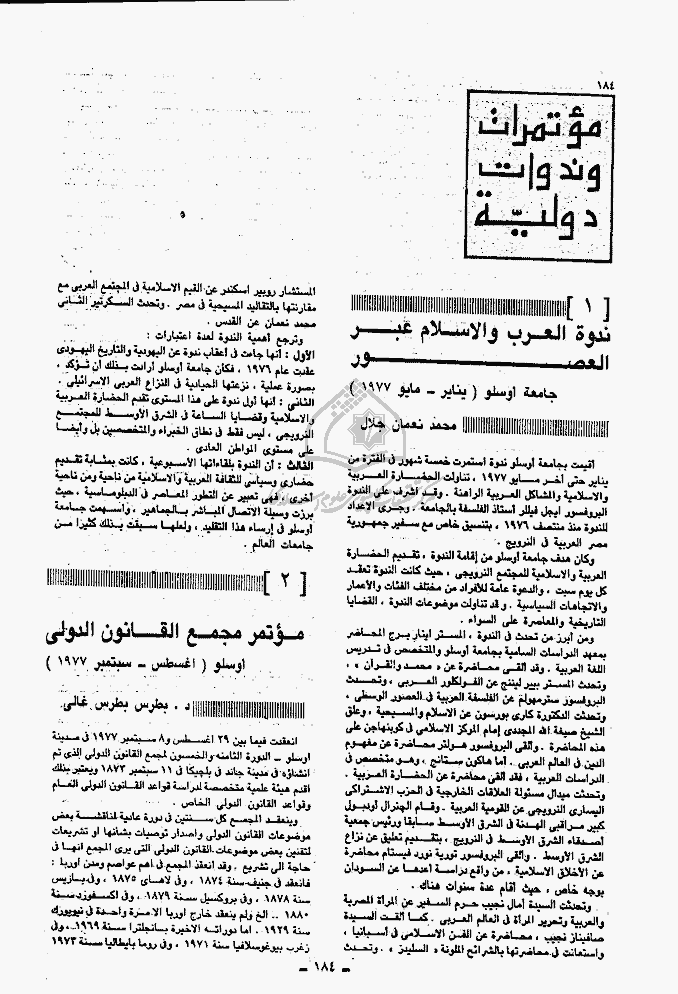 ١٨٤
مؤتمرات
وندوات
دولية
[ ١ ]
ندوة العرب والاسلام عبر
العصور
جامعة اوسلو ( يناير – مايو ١٩٧٧ )
محمد نعمان جلال
أقيمت بجامعة أوسلو ندوة استمرت خمسة شهور في الفترة من
يناير حتى آخر مايو ١٩٧٧ ، تناولت الحضارة العربية
والاسلامية والمشاكل العربية الراهنة . وقد أشرف على الندوة
البروفسور ايجل فيللر أستاذ الفلسفة بالجامعة . وجرى الاعداد
للندوة منذ منتصف ١٩٧٦ ، بتنسيق خاص مع سفير جمهورية
مصر العربية في النرويج .
وكان هدف جامعة أوسلو من إقامة الندوة ، تقديم الحضارة
العربية والاسلامية للمجتمع النرويجي ، حيث كانت الندوة تعقد
كل يوم سبت ، والدعوة عامة للأفراد من مختلف الفئات والأعمار
والاتجاهات السياسية . وقد تناولت موضوعات الندوة ، القضايا
التاريخية والمعاصرة على السواء .
ومن أبرز من تحدث في الندوة ، المستر اينار برج المحاضر
بمعهد الدراسات السامية بجامعة أوسلو والمتخصص في تدريس
اللغة العربية . وقد ألقى محاضرة عن « محمد والقرآن » ،
وتحدث المستر بيير ليننج عن الفولكلور العربي ، وتحدث
البروفسور سترمهولم عن الفلسفة العربية في العصور الوسطى ،
وتحدثت الدكتورة كارى بورسون عن الاسلام والمسيحية ، وعلق
الشيخ صيغة الله المجددى إمام المركز الاسلامى في كوبنهاجن على
هذه المحاضرة . وألقى البروفسور هولتر محاضرة عن مفهوم
الدين في العالم العربى . أما هاكون ستانج ، وهو متخصص في
الدراسات العربية ، فقد ألقى محاضرة عن الحضارة العربية .
وتحدث ميدال مسئولة العلاقات الخارجية في الحزب الاشتراكى
اليسارى النرويجي عن القومية العربية . وقام الجنرال أودبول
كبير مراقبى الهدنة في الشرق الأوسط سابقا ورئيس جمعية
أصدقاء الشرق الأوسط في النرويج ، بتقديم تعليق عن نزاع
الشرق الأوسط . وألقى البروفسور تورية نورد فيستام محاضرة
عن الأخلاق الاسلامية ، من واقع دراسة أعدها عن السودان
بوجه خاص ، حيث أقام عدة سنوات هناك .
وتحدثت السيدة آمال نجيب حرم السفير عن المرأة المصرية
والعربية وتحرير المرأة في العالم العربى . كما ألقت السيدة
صافيناز نجيب ، محاضرة عن الفن الاسلامى في أسبانيا ،
واستعانت في محاضرتها بالشرائح الملونة « السليدز » . وتحدث
المستشار روبير اسكندر عن القيم الاسلامية في المجتمع العربى مع
مقارنتها بالتقاليد المسيحية في مصر . وتحدث السكرتير الثانى
محمد نعمان عن القدس .
وترجع أهمية الندوة لعدة اعتبارات :
الأول : أنها جاءت في أعقاب ندوة عن اليهودية والتاريخ اليهودى
عقدت عام ١٩٧٦ ، فكان جامعة أوسلو أرادت بذلك أن تؤكد ،
بصورة عملية ، نزعتها الحيادية في النزاع العربى الاسرائيلى .
الثانى : أنها أول ندوة على هذا المستوى تقدم الحضارة العربية
والاسلامية وقضايا الساعة في الشرق الأوسط للمجتمع
النرويجي ، ليس فقط في نطاق الخبراء والمتخصصين بل وأيضا
على مستوى المواطن العادى .
الثالث : أن الندوة بلقاءاتها الأسبوعية ، كانت بمثابة تقديم
حضارى وسياسى للثقافة العربية والاسلامية من ناحية ومن ناحية
أخرى ، فهى تعبير عن التطور المعاصر في الدبلوماسية ، حيث
برزت وسيلة الاتصال المباشر بالجماهير ، وأسهمت جامعة
أوسلو في إرساء هذا التقليد ، ولعلها سبقت بذلك كثيرا من
جامعات العالم .
[ ٢ ]
مؤتمر مجمع القانون الدولى
اوسلو ( اغسطس – سبتمبر ١٩٧٧ )
د . بطرس بطرس غالى
انعقدت فيما بين ٢٩ اغسطس و٨ سبتمبر ١٩٧٧ في مدينة
اوسلو – الدورة الثامنة والخمسون لمجمع القانون الدولى الذى تم
انشاؤه في مدينة جاند في بلجيكا في ١١ سبتمبر ١٨٧٣ ويعتبر بذلك
أقدم هيئة علمية متخصصة لدراسة قواعد القانون الدولى العام
وقواعد القانون الدولى الخاص .
وينعقد المجمع كل سنتين في دورة عادية لمناقشة بعض
موضوعات القانون الدولى واصدار توصيات بشأنها أو تشريعات
لتقنين بعض موضوعات القانون الدولى التى يرى المجمع انها في
حاجة الى تشريع . وقد انعقد المجمع في أهم عواصم ومدن اوربا :
فانعقد في جنيف سنة ١٨٧٤ ، وفي لاهاى ١٨٧٥ ، وفي باريس
سنة ١٨٧٨ ، وفي بروكسيل سنة ١٨٧٩ ، وفي اكسفورد سنة
١٨٨٠ .. الخ ولم ينعقد خارج اوربا الا مرة واحدة في نيويورك
سنة ١٩٢٩ . اما دوراته الاخيرة بانجلترا سنة ١٩٦٩ ، وفي
زغرب بيوغوسلافيا سنة ١٩٧١ ، وفي روما بايطاليا سنة ١٩٧٣
– ١٨٤ –